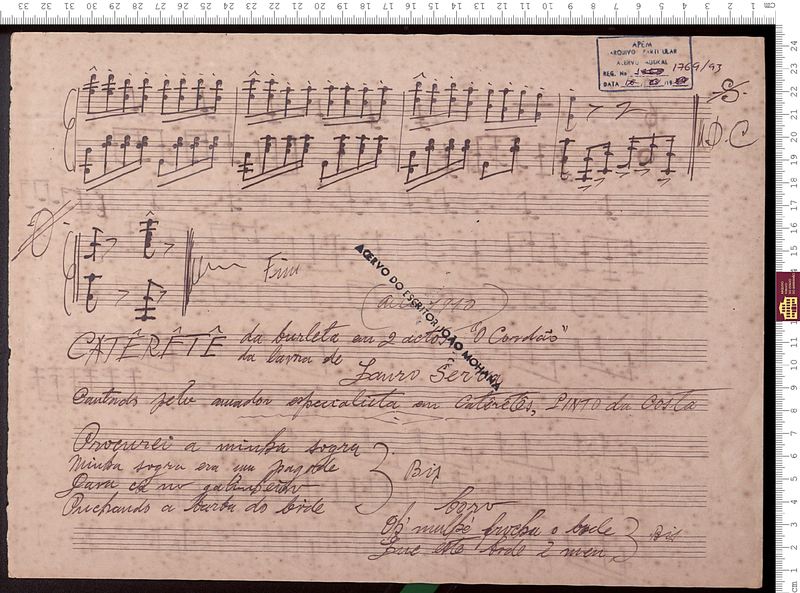 APEM
ARQUIVO PARTICULAR
ACERVO MUSICAL
REG. No. 1769/93
DATA
D.C
Fim
ACERVO DO ESCRITOR JOÃO MOHANA
1910
CATÊRÊTÊ da burleta em 2 actos "O Cordão"
da lavra de
Lauro Serra
Cantado pelo amador especialista em Caterêtês, PINTO da Costa
Procurei a minha sogra
Minha sogra era um pagode
Para cá no
Puchando a barba do bode
Bis
Coro
Oh' mulhé o bode
Que este bode é meu
Bis